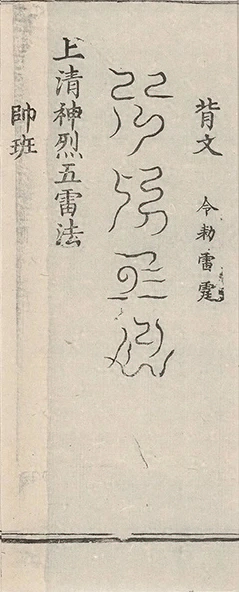 背文
令勅雷霆
上清神烈五雷法
帥班